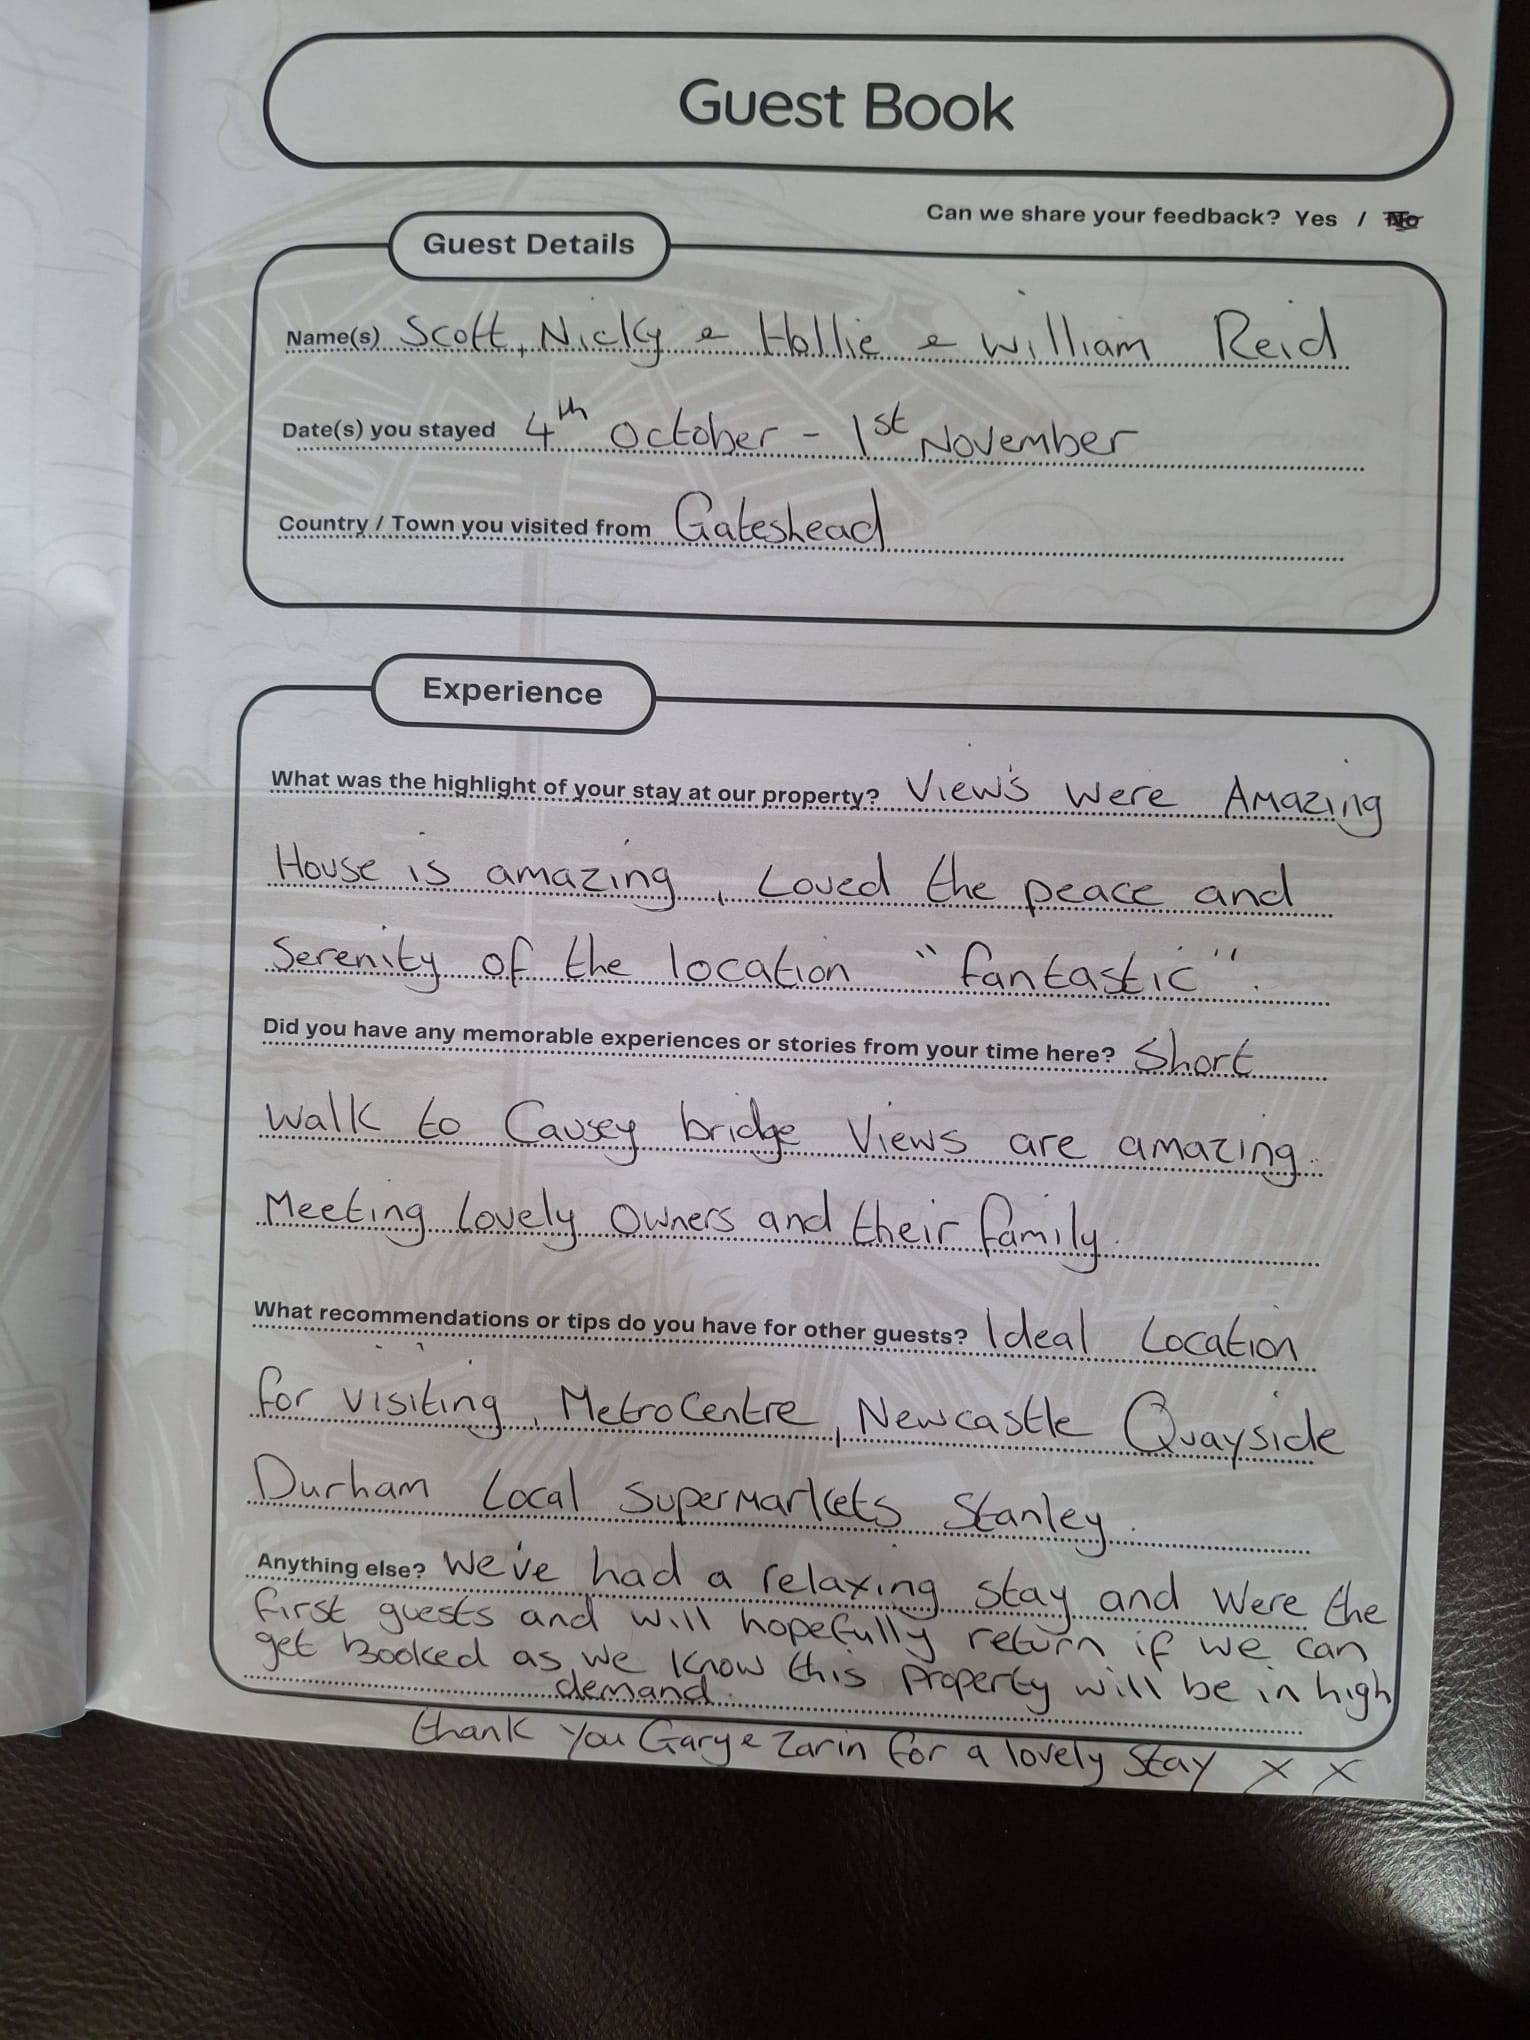 Guest Book
Can we share your feedback? Yes / No
Guest Details
Name(s) Scott, Nicky & Hollie & William Reid
Date(s) you stayed 4th October - 1st November
Country / Town you visited from Gateshead
Experience
What was the highlight of your stay at our property? View's were Amazing
House is amazing, Loved the peace and
Serenity of the location "fantastic".
Did you have any memorable experiences or stories from your time here? Short
walk to Causey bridge Views are amazing.
Meeting lovely owners and their family.
What recommendations or tips do you have for other guests? Ideal Location
for visiting, MetroCentre, Newcastle Quayside
Durham Local Supermarkets Stanley.
Anything else? We've had a relaxing stay and were the
first guests and will hopefully return if we can
get Booked as we know this property will be in high
demand.
thank you Gary & Zarin for a lovely stay x x